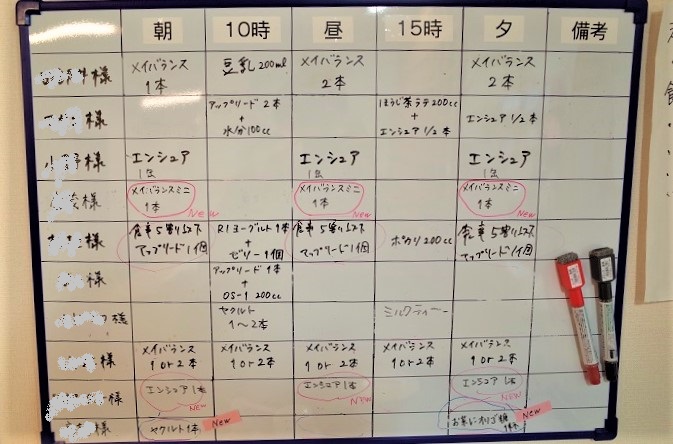 朝 10時 昼 15時 夕 備考
様 メイバランス 1本 豆乳200ml メイバランス 2本 メイバランス 2本
様 アップリード 2本 + 水分100cc ほうじ茶ラテ200cc + エンシュア 1/2本 エンシュア 1/2本
小野様 エンシュア 1缶 エンシュア 1缶 エンシュア 1缶
様 メイバランスミニ 1本 New メイバランスミニ 1本 New メイバランスミニ 1本 New
様 食事5割以下 アップリード1個 R1ヨーグルト1本 + ゼリー1個 食事5割以下 アップリード1個 ポカリ200cc 食事5割以下 アップリード1個
様 アップリード1本 + OS-1 200cc
様 ヤクルト 1〜2本 ミルクティー
様 メイバランス 1or2本 メイバランス 1or2本 メイバランス 1or2本 メイバランス 1or2本 メイバランス 1or2本
様 エンシュア1本 New エンシュア1本 New エンシュア1本 New
様 ヤクルト1本 New お茶にオリゴ糖 1杯 New